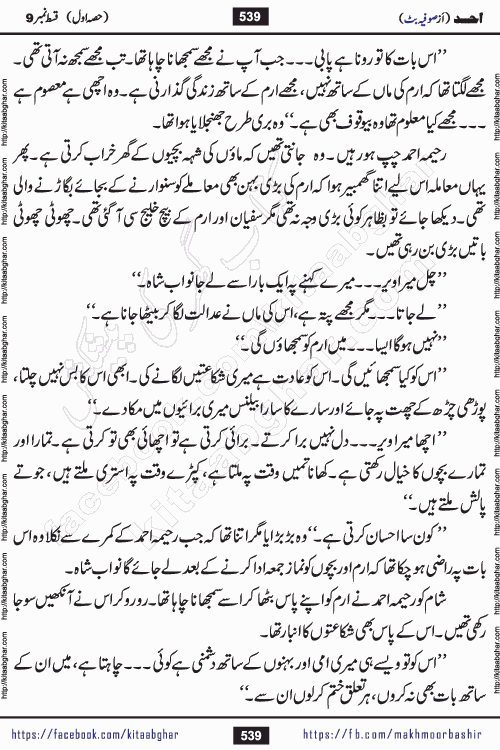 احمد (از صوفیہ بٹ) 539 (حصہ اول) قسط نمبر 9
’’اس بات کا تو رونا ہے پابی۔۔۔ جب آپ نے مجھے سمجھانا چاہا تھا۔ تب مجھے سمجھ نہ آتی تھی۔
مجھے لگتا تھا کہ ارم کی ماں کے ساتھ نہیں، مجھے ارم کے ساتھ زندگی گذارنی ہے۔ وہ اچھی ہے معصوم ہے
۔۔۔ مجھے کیا معلوم تھا وہ بیوقوف بھی ہے۔‘‘ وہ بری طرح جھنجلایا ہوا تھا۔
رحیمہ احمد چپ ہو رہیں ۔ وہ جانتی تھیں کہ ماؤں کی شہہ بچیوں کے گھر خراب کرتی ہے۔ پھر
یہاں معاملہ اس لیے اتنا گھمبیر ہوا کہ ارم کی بڑی بہن بھی معاملے کو سنوارنے کے بجائے بگاڑنے والی
تھی۔ دیکھا جائے تو بظاہر کوئی بڑی وجہ نہ تھی مگر سفیان اور ارم کے بیچ خلیج سی آ گئی تھی۔ چھوٹی چھوٹی
باتیں بڑی بن رہی تھیں۔
’’چل میرا ویر۔۔۔ میرے کہنے پہ ایک بار اسے لے جا نواب شاہ۔‘‘
’’لے جاتا۔۔۔ مگر مجھے پتہ ہے، اس کی ماں نے عدالت لگا کر بیٹھا جانا ہے۔‘‘
’’نہیں ہو گا ایسا۔۔۔ میں ارم کو سمجھاؤں گی۔‘‘
’’اس کو کیا سمجھائیں گی۔ اس کو عادت ہے میری شکایتیں لگانے کی۔ ابھی اس کا بس نہیں چلتا،
پوڑھی چڑھ کے چھت پہ جائے اور سارے کا سارا بیلنس میری برائیوں میں مکا دے۔‘‘
’’اچھا میرا ویر۔۔۔ دل نہیں برا کرتے۔ برائی کرتی ہے تو اچھائی بھی تو کرتی ہے۔ تمہارا اور
تمہارے بچوں کا خیال رکھتی ہے۔ کھانا تمہیں وقت پہ ملتا ہے، کپڑے وقت پہ استری ملتے ہیں، جوتے
پالش ملتے ہیں۔‘‘
’’کون سا احسان کرتی ہے۔‘‘ وہ بڑبڑایا مگر اتنا تھا کہ جب رحیمہ احمد کے کمرے سے نکلا وہ اس
بات پہ راضی ہو چکا تھا کہ ارم اور بچوں کو نماز جمعہ ادا کرنے کے بعد لے جائے گا نواب شاہ۔
شام کو رحیمہ احمد نے ارم کو اپنے پاس بٹھا کر اسے سمجھانا چاہا تھا۔ رو رو کر اس نے آنکھیں سوجا
رکھی تھیں۔ اس کے پاس بھی شکایتوں کا انبار تھا۔
’’اس کو تو ویسے ہی میری امی اور بہنوں کے ساتھ دشمنی ہے کوئی۔۔۔ چاہتا ہے، میں ان کے
ساتھ بات بھی نہ کروں، ہر تعلق ختم کر لوں ان سے۔‘‘
https://facebook.com/kitaabghar 539 https://fb.com/makhmoorbashir
http://kitaabghar.com